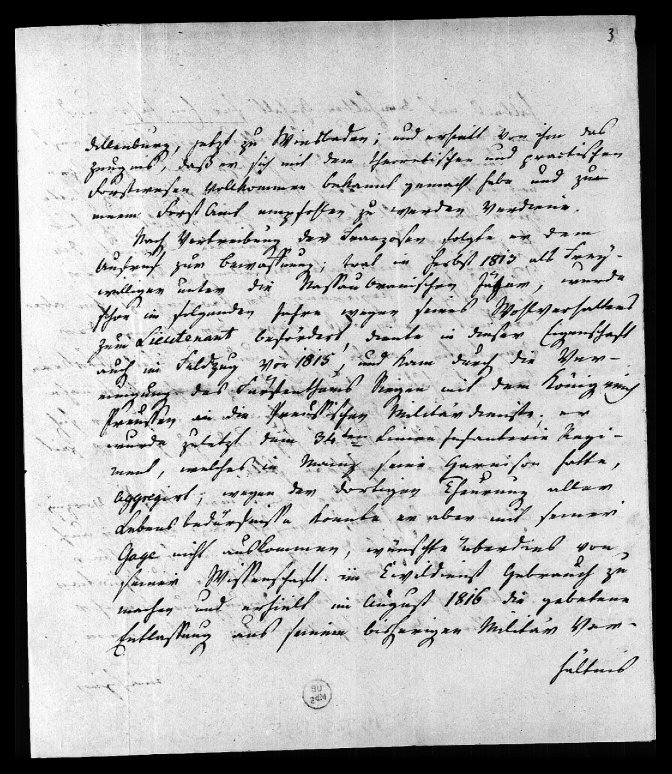 3
dillenburg, jetzt zu Wiesbaden; und erhielt von ihm das
Zeugnis, daß er sich mit dem theoretischen und practischen
Forstwesen vollkommen bekannt gemacht habe und zu
einem Forst Amt empfohlen zu werden verdiene.
Nach Vertreibung der Franzosen folgte er dem
Aufruf zur Bewaffnung; trat im Herbst 1813 als Frey-
williger unter die Nassauoranischen Jäger, wurde
schon im folgenden Jahre wegen seines Wohlverhaltens
zum Lieutenant befördert, diente in dieser Eigenschaft
auch im Feldzug von 1815, und kam durch die Ver-
einigung des Fürstenthums Siegen mit dem Königreich
Preussen in die Preussischen Militärdienste; er
wurde zuletzt dem 34ten Linien Infanterie Regi-
ment, welches in Mainz seine Garnison hatte,
aggregirt; wegen der dortigen Theurung aller
Lebensbedürfnisse konnte er aber mit seiner
Gage nicht auskommen, wünschte überdies von
seiner Wissenschaft im Civildienst Gebrauch zu
machen und erhielt im August 1816 die gebetene
Entlassung aus seinem bisherigen Militär Ver-
hältnis